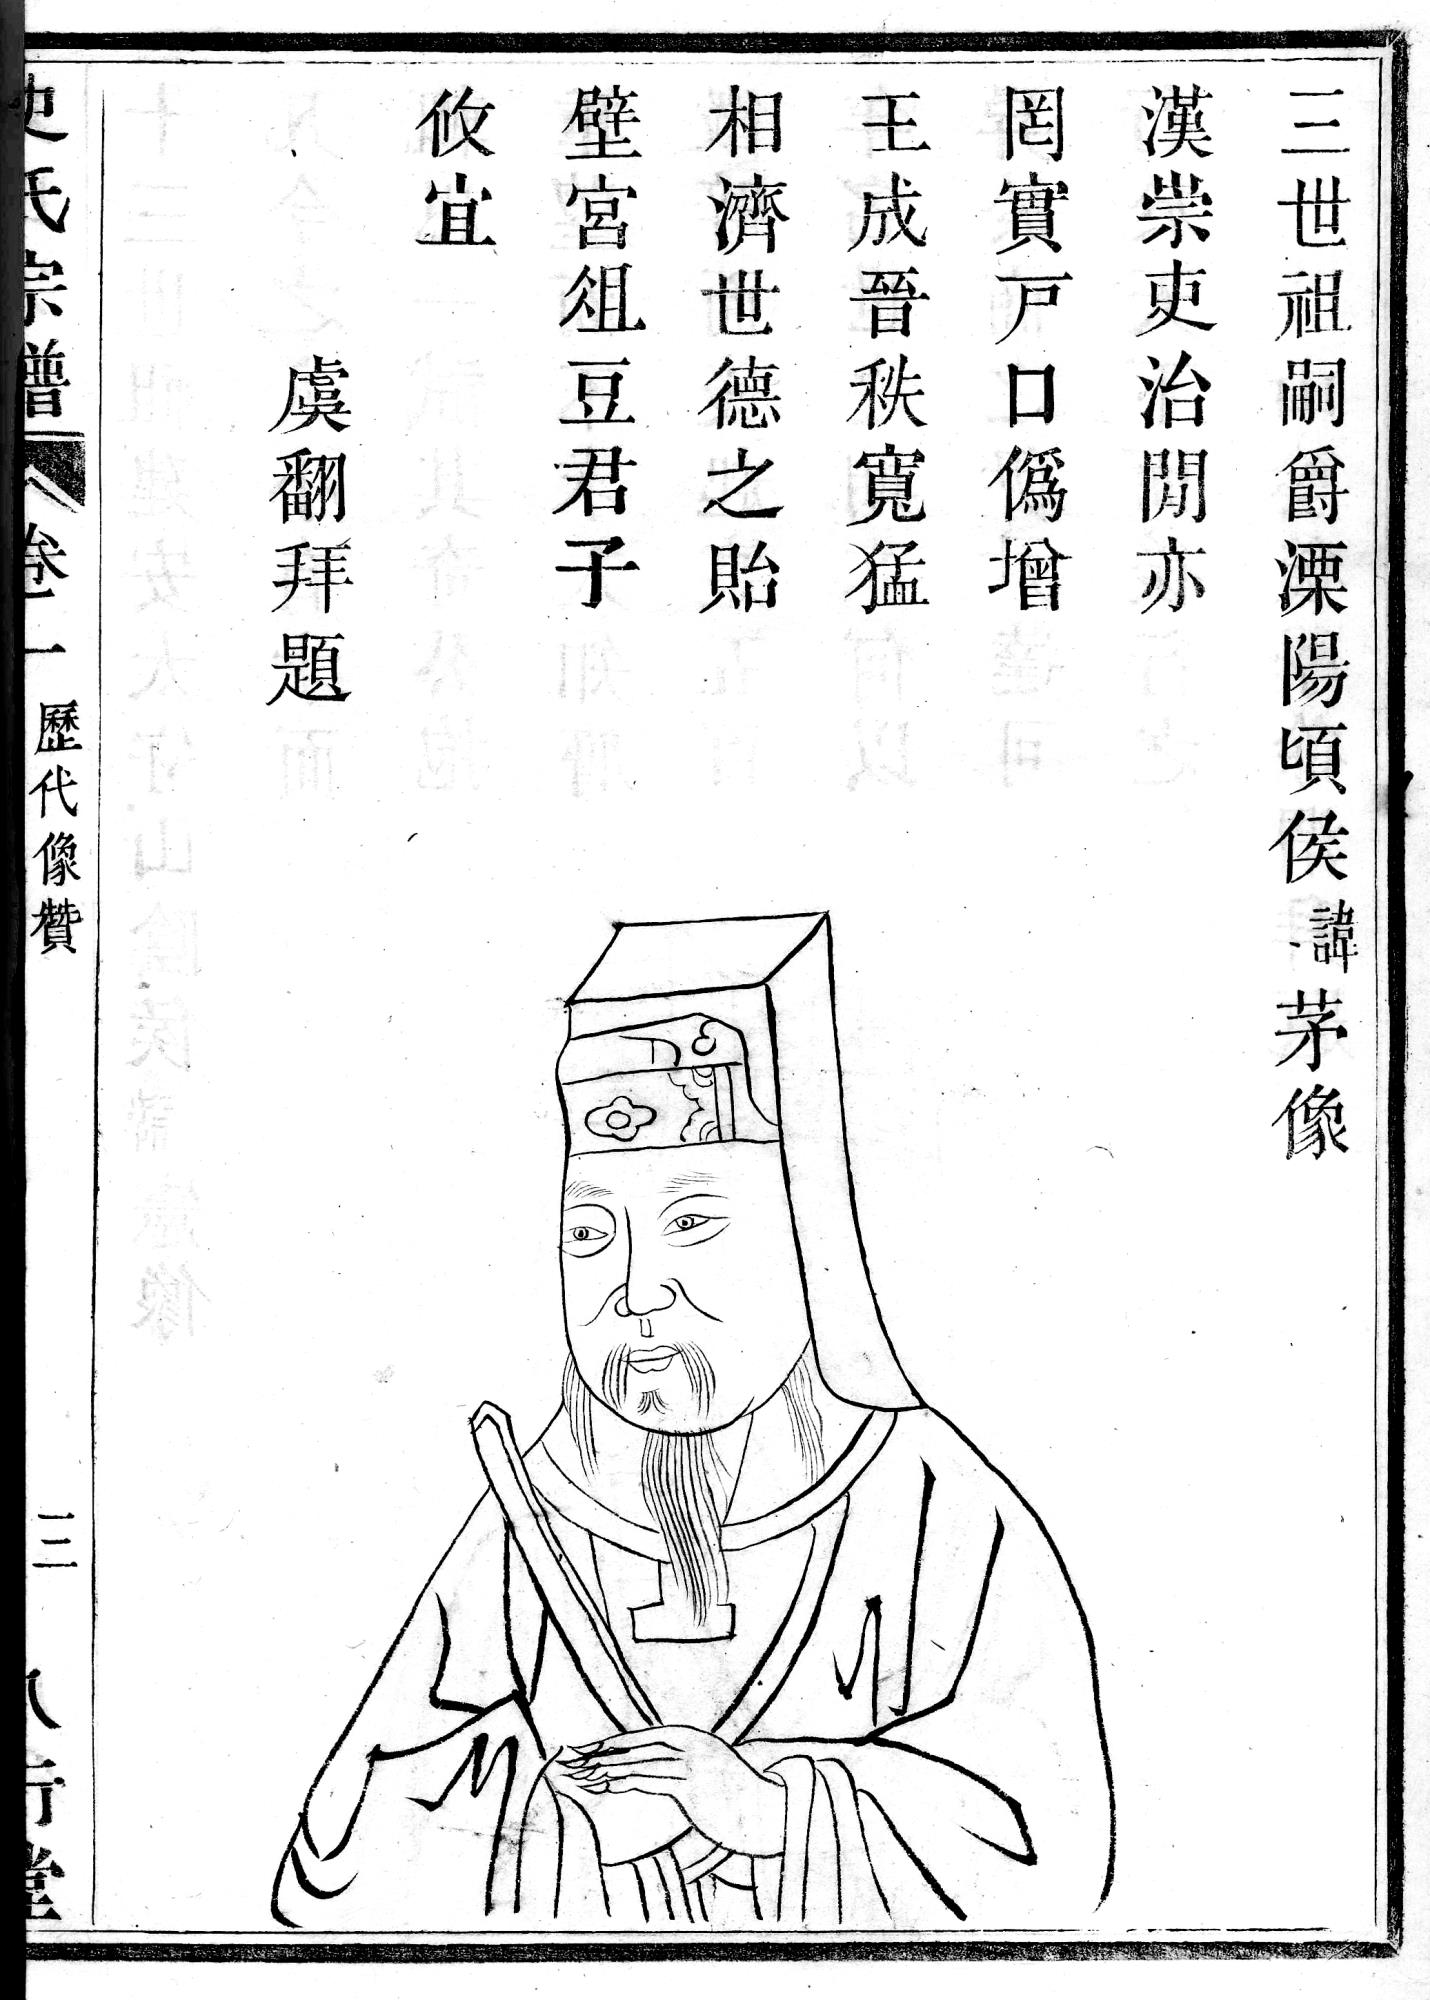 三世祖嗣爵溧陽頃侯諱茅像
漢崇吏治閒亦
罔實戸口僞增
王成晉秩寬猛
相濟世德之貽
壁宮俎豆君子
攸宜
虞翻拜題
史氏宗譜
卷一
歷代像贊
三
八行堂